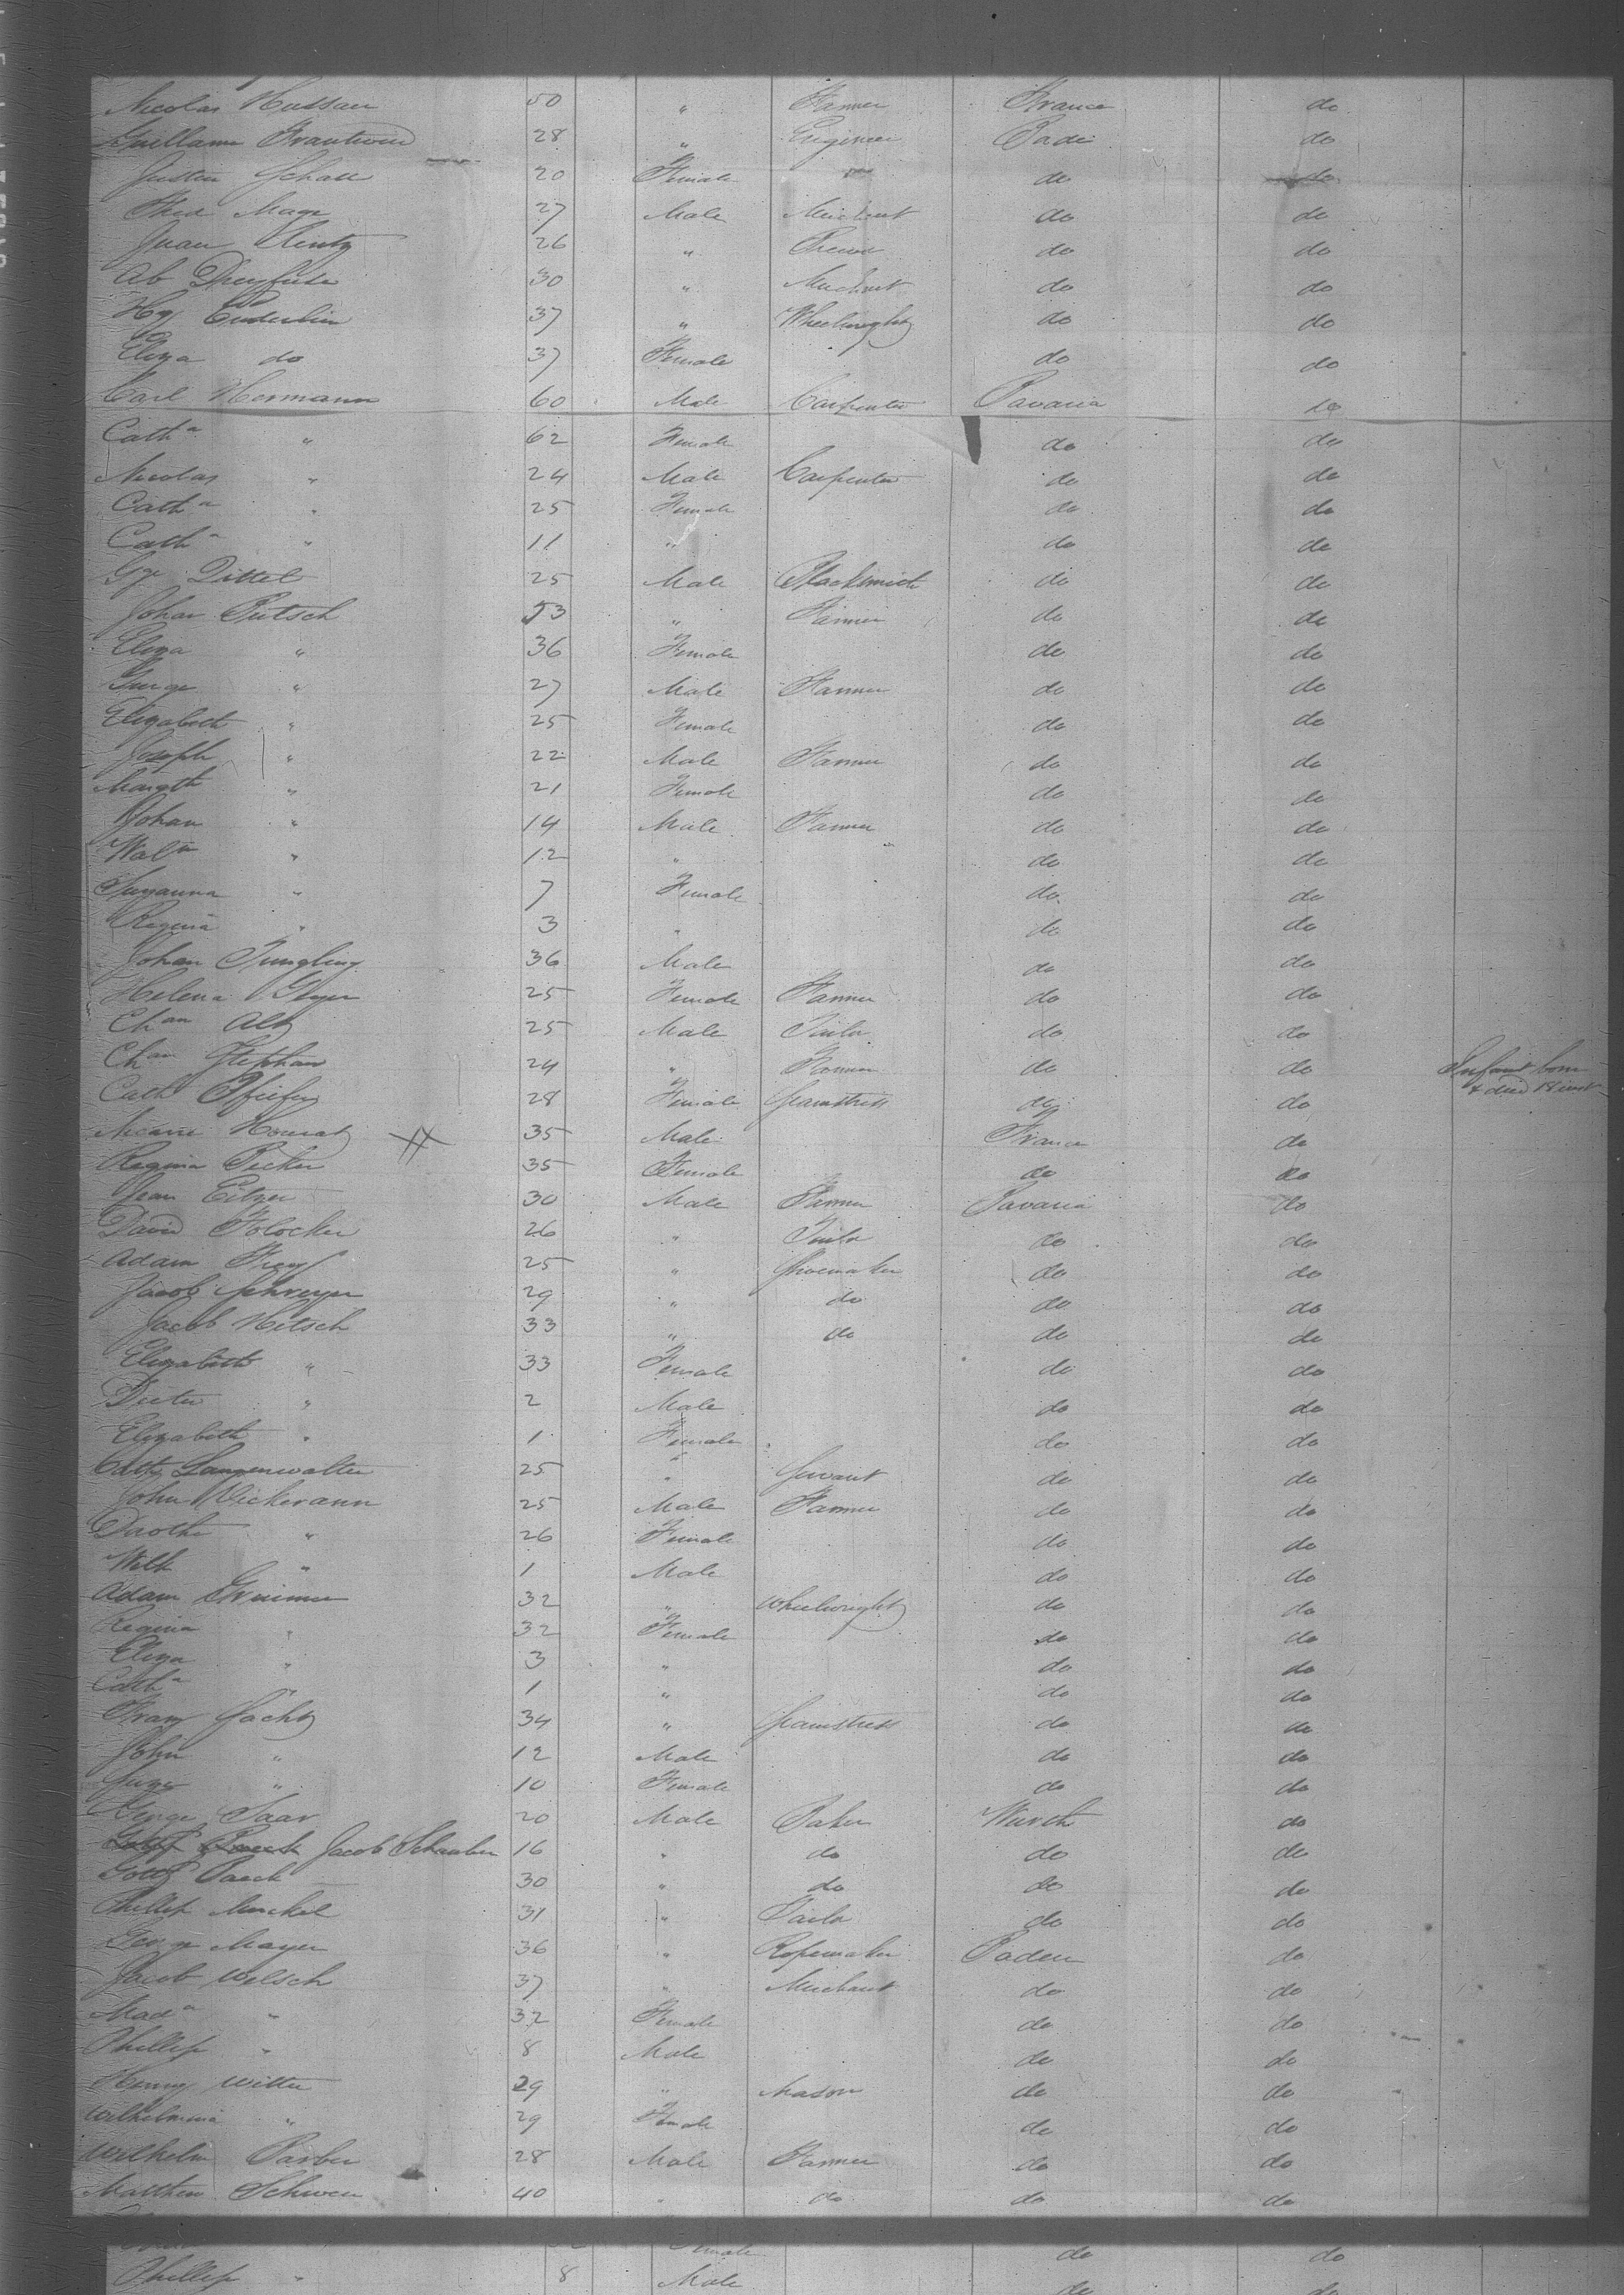 Nicolas Hussau 50 " Farmer France do
Guillaume Trautwein 28 " Engineer Bade do
Justin Schall 20 Female do do
Thed Maye 27 Male Merchant do do
Juan Rentz 26 " Brewer do do
Ab Dreyfuss 30 " Merchant do do
Hy Enderlin 37 " Wheelwright do do
Eliza do 37 Female do do
Carl Hermann 60 Male Carpenter Bavaria do
Cath a " 62 Female do do
Nicolas " 24 Male Carpenter do do
Cath a " 25 Female do do
Cath a " 11 " do do
Gge Dittel 25 Male Blacksmith do do
Johan Pietsch 53 " Farmer do do
Eliza " 36 Female do do
George " 27 Male Farmer do do
Elizabeth " 25 Female do do
Joseph " 22 Male Farmer do do
Margth " 21 Female do do
Johan " 14 Male Farmer do do
Walm " 12 " do do
Susanna " 7 Female do do
Regina " 3 " do do
Johan Jungling 36 Male do do
Helena Geyer 25 Female Farmer do do
Chan Alt 25 Male Tailor do do
Chan Stephan 24 " Farmer do do Infant born
Cath Pfeifer 28 Female Seamstress do do & died 18 inst
35 Male France do
Regina Becker 35 Female do do
Jean Eitzer 30 Male Farmer Bavaria do
David Holocker 26 " Tailor do do
Adam Frey 25 " Shoemaker do do
Jacob Schreyer 29 " do do do
Jacob Hetsch 33 " do do do
Elizabeth " 33 Female do do
Dieter " 2 Male do do
Elizabeth " 1 Female do do
Cath Langenwalter 25 " Servant do do
John Wickerann 25 Male Farmer do do
Daoth " 26 Female do do
Wilh " 1 Male do do
Adam Greimer 32 " Wheelwright do do
Regina " 32 Female do do
Eliza " 3 " do do
Cath a " 1 " do do
Franz Jacht 34 " Seamstress do do
John " 12 Male do do
" 10 Female do do
George Saar 20 Male Baker Wurth do
Jacob Schauber 16 " do do do
Gottf Paeck 30 " do do do
Phillip Merckel 31 " Tailor do do
George Mayer 36 " Ropemaker Baden do
Jacob Welsch 37 " Merchant do do
Mad a " 32 Female do do
Phillip " 8 Male do do
Henry Witter 29 " Mason do do
Wilhelmina " 29 Female do do
Wilhelm Barber 28 Male Farmer do do
Matthew Schwen 40 " do do do
Female do do
Phillip " 8 Male do do